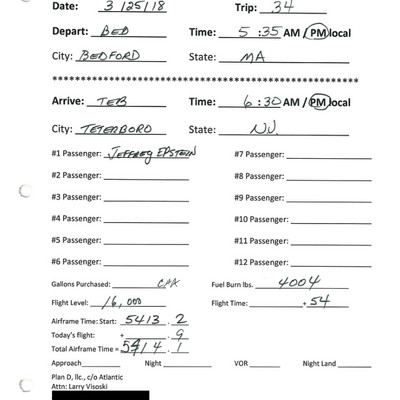 Date: 3/25/18 Trip: 34
Depart: BED Time: 5:35 AM / PM local
City: BEDFORD State: MA
**********************************************************
Arrive: TEB Time: 6:30 AM / PM local
City: TETERBORO State: NJ.
#1 Passenger: JEFFREY EPSTEIN #7 Passenger:
#2 Passenger: #8 Passenger:
#3 Passenger: #9 Passenger:
#4 Passenger: #10 Passenger:
#5 Passenger: #11 Passenger:
#6 Passenger: #12 Passenger:
Gallons Purchased: Fuel Burn lbs. 4004
Flight Level: 16,000 Flight Time: +54
Airframe Time: Start: 5413.2
Today's flight: + .9
Total Airframe Time = 5414.1
Approach Night VOR Night Land
Plan D, llc., c/o Atlantic
Attn: Larry Visoski